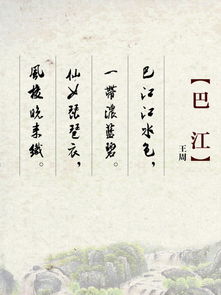 【巴江】
王周
巴江江水色，
一带浓蓝碧。
仙女瑟瑟衣，
風梭晚来織。